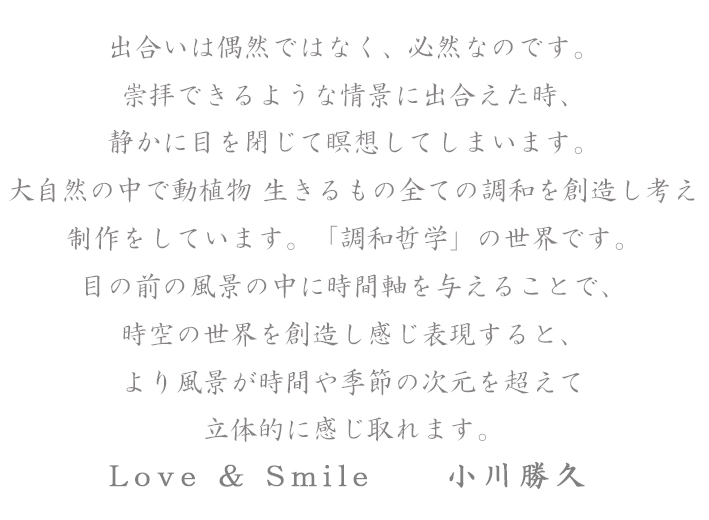 出合いは偶然ではなく、必然なのです。
崇拝できるような情景に出合えた時、
静かに目を閉じて瞑想してしまいます。
大自然の中で動植物 生きるもの全ての調和を創造し考え
制作をしています。「調和哲学」の世界です。
目の前の風景の中に時間軸を与えることで、
時空の世界を創造し感じ表現すると、
より風景が時間や季節の次元を超えて
立体的に感じ取れます。
Love & Smile　　小川勝久